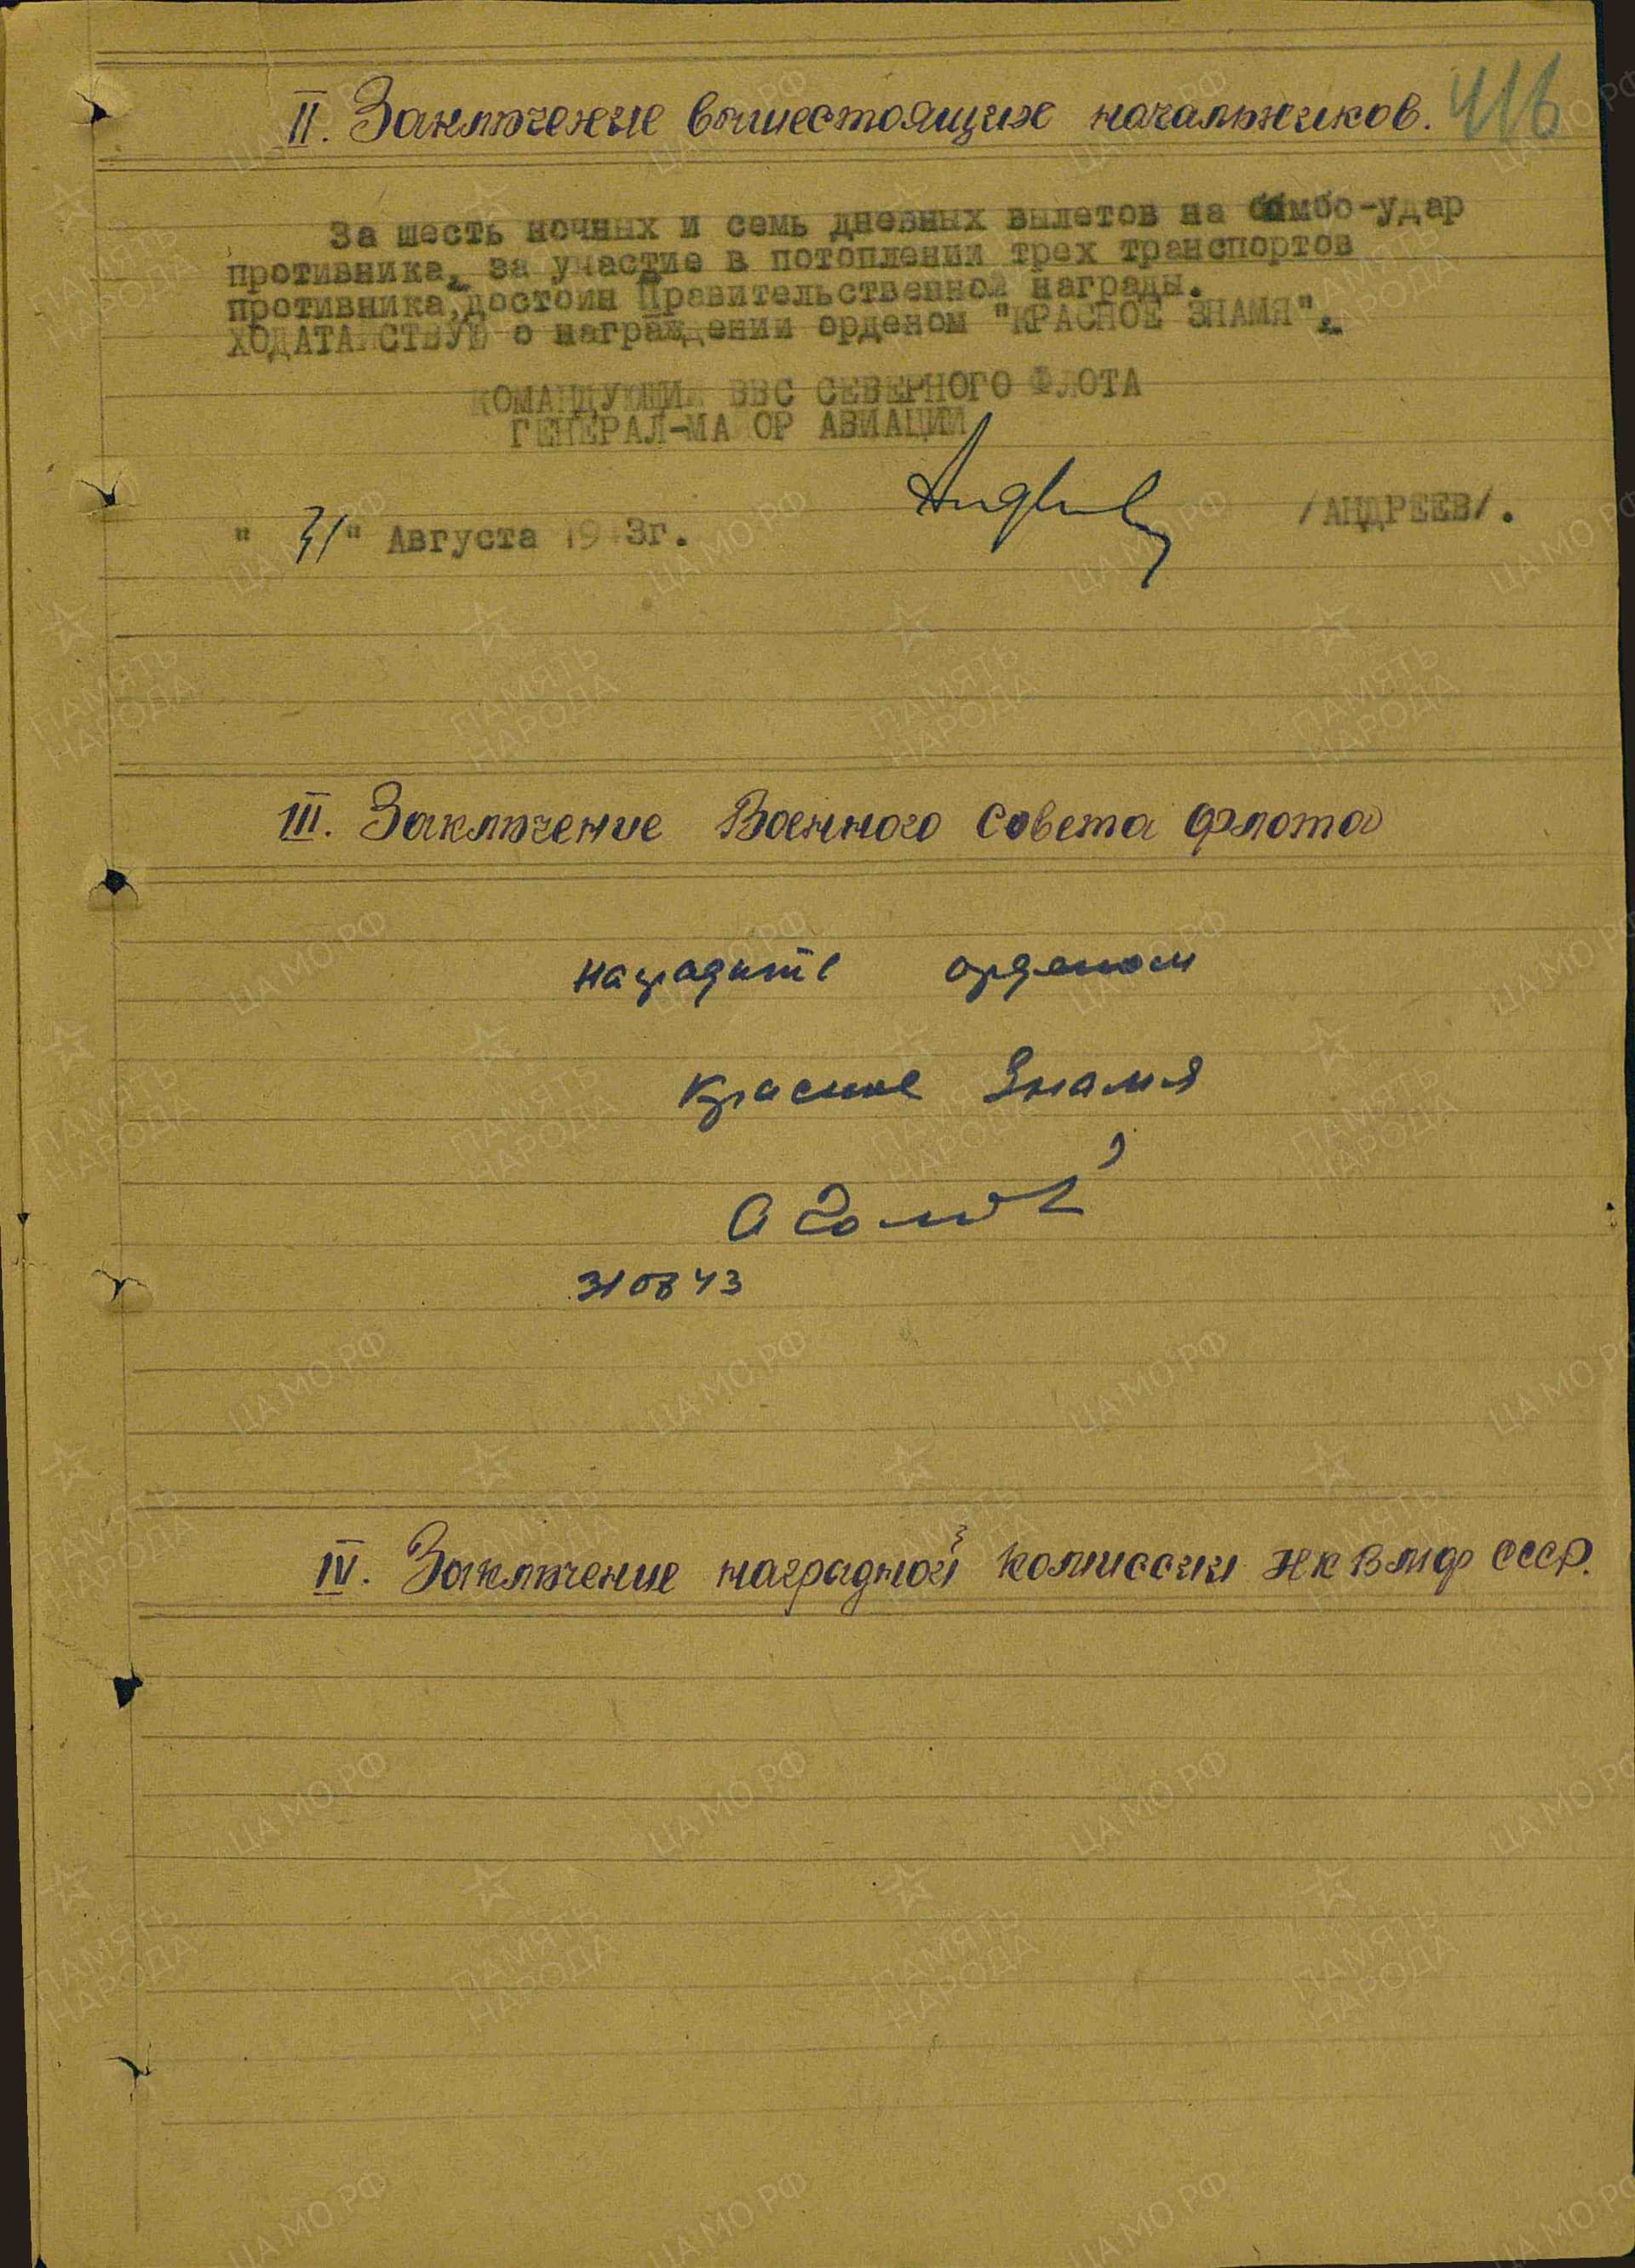 416
II. Заключение вышестоящих начальников.
За шесть ночных и семь дневных вылетов на бомбо-удар
противника, за участие в потоплении трех транспортов
противника, достоин Правительственной награды.
ХОДАТАЙСТВУЮ о награждении орденом "КРАСНОЕ ЗНАМЯ".
КОМАНДУЮЩИЙ ВВС СЕВЕРНОГО ФЛОТА
ГЕНЕРАЛ-МАЙОР АВИАЦИИ
/АНДРЕЕВ/.
" 31" Августа 1943г.
III. Заключение Военного Совета Флота
Наградить орденом
Красное Знамя
31 08 43
IV. Заключение наградной комиссии НК ВМФ СССР.
ПАМЯТЬ НАРОДА
ЦА МО РФ